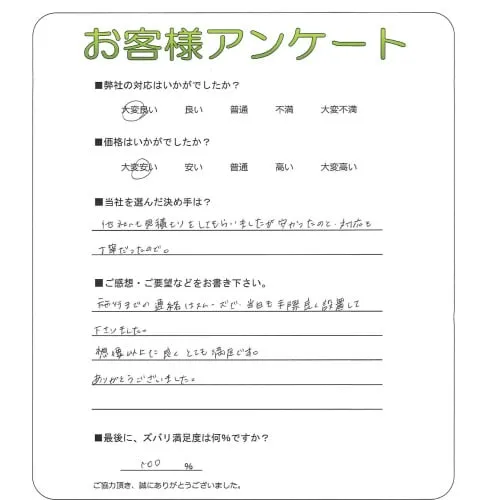 お客様アンケート
■弊社の対応はいかがでしたか?
大変良い 良い 普通 不満 大変不満
■価格はいかがでしたか?
大変安い 安い 普通 高い 大変高い
■当社を選んだ決め手は?
他社にも見積もりをしてもらいましたが安かったのと、対応も
丁寧だったので。
■ご感想・ご要望などをお書き下さい。
施行までの連絡はスムーズで、当日も手際良く設置して
下さりました。
想像以上に良くとても満足です。
ありがとうございました。
■最後に、ズバリ満足度は何%ですか?
100 %
ご協力頂き、誠にありがとうございました。